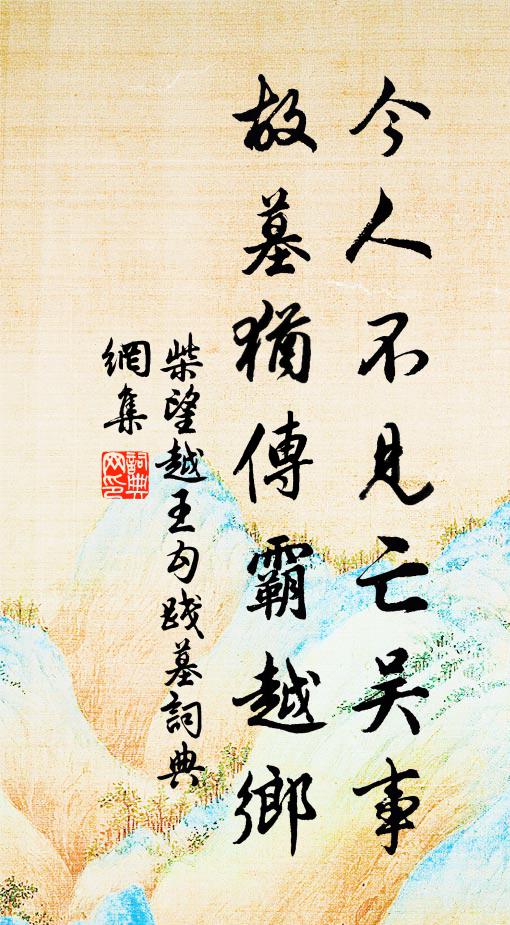 今人不見亡吴事
故墓猶傳霸越鄉
柴望越王勾踐墓詞典
網集
詞典網印